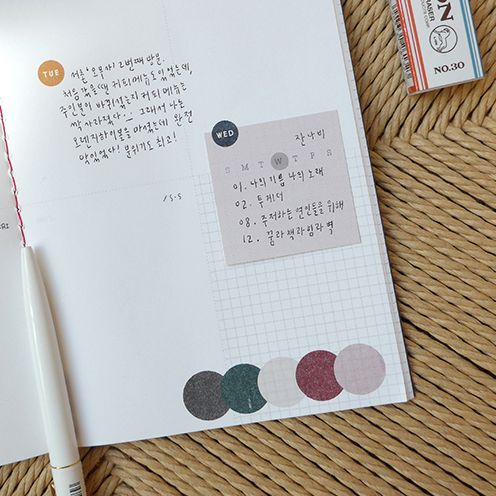 TUE
서촌 오무사! 2번째 방문.
처음 갔을 땐 커피메뉴도 있었는데,
주인분이 바뀌셨는지 커피 메뉴는
싹 사라졌다._ 그래서 나는
오렌지하이볼을 마셨는데 완전
맛있었다! 분위기도 최고!
/ S-S
WED
잔나비
S M T W T F S
01. 나의 기쁨 나의 노래
02. 투게더
08. 주저하는 연인들을 위해
12. 꿈과 책과 힘과 벽
ON
ERASER
NO.30